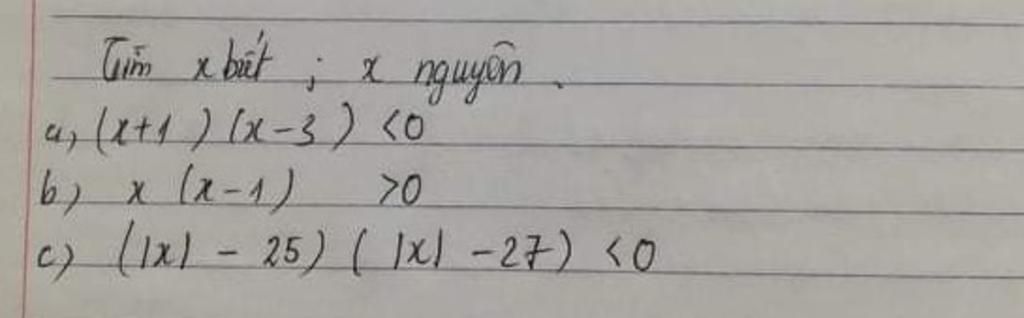 Tìm x biết ; x nguyên .
a, (x+1) (x-3) <0
b) x (x-1) >0
c) (|x| - 25) ( |x| - 27) <0